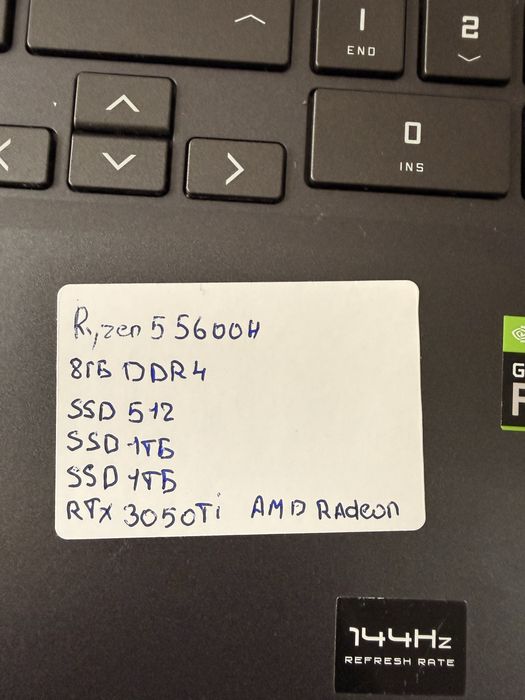 1
END
2
0
INS
Ryzen 5 5600H
8ГБ DDR4
SSD 512
SSD 1ТБ
SSD 1ТБ
RTX 3050Ti AMD RAdeon
144Hz
REFRESH RATE